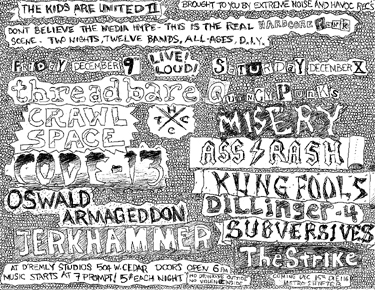 THE KIDS ARE UNITED II
BROUGHT TO YOU BY EXTREME NOISE AND HAVOC RECS
DON'T BELIEVE THE MEDIA HYPE - THIS IS THE REAL HARDCORE PUNK
SCENE. TWO NIGHTS, TWELVE BANDS, ALL-AGES, D.I.Y.
FRIDAY DECEMBER 9
LIVE! LOUD!
SATURDAY DECEMBER X
threadbare
CRAWL
SPACE
CODE-13
OSWALD
ARMAGEDDON
JERKHAMMER
T H C C
MISERY
ASSRASH
KUNG FOOLS
Dillinger-4
SUBVERSIVES
The Strike
AT D'REMILY STUDIOS 504 W. CEDAR DOORS OPEN 6 PM
MUSIC STARTS AT 7 PROMPT! 5$ EACH NIGHT